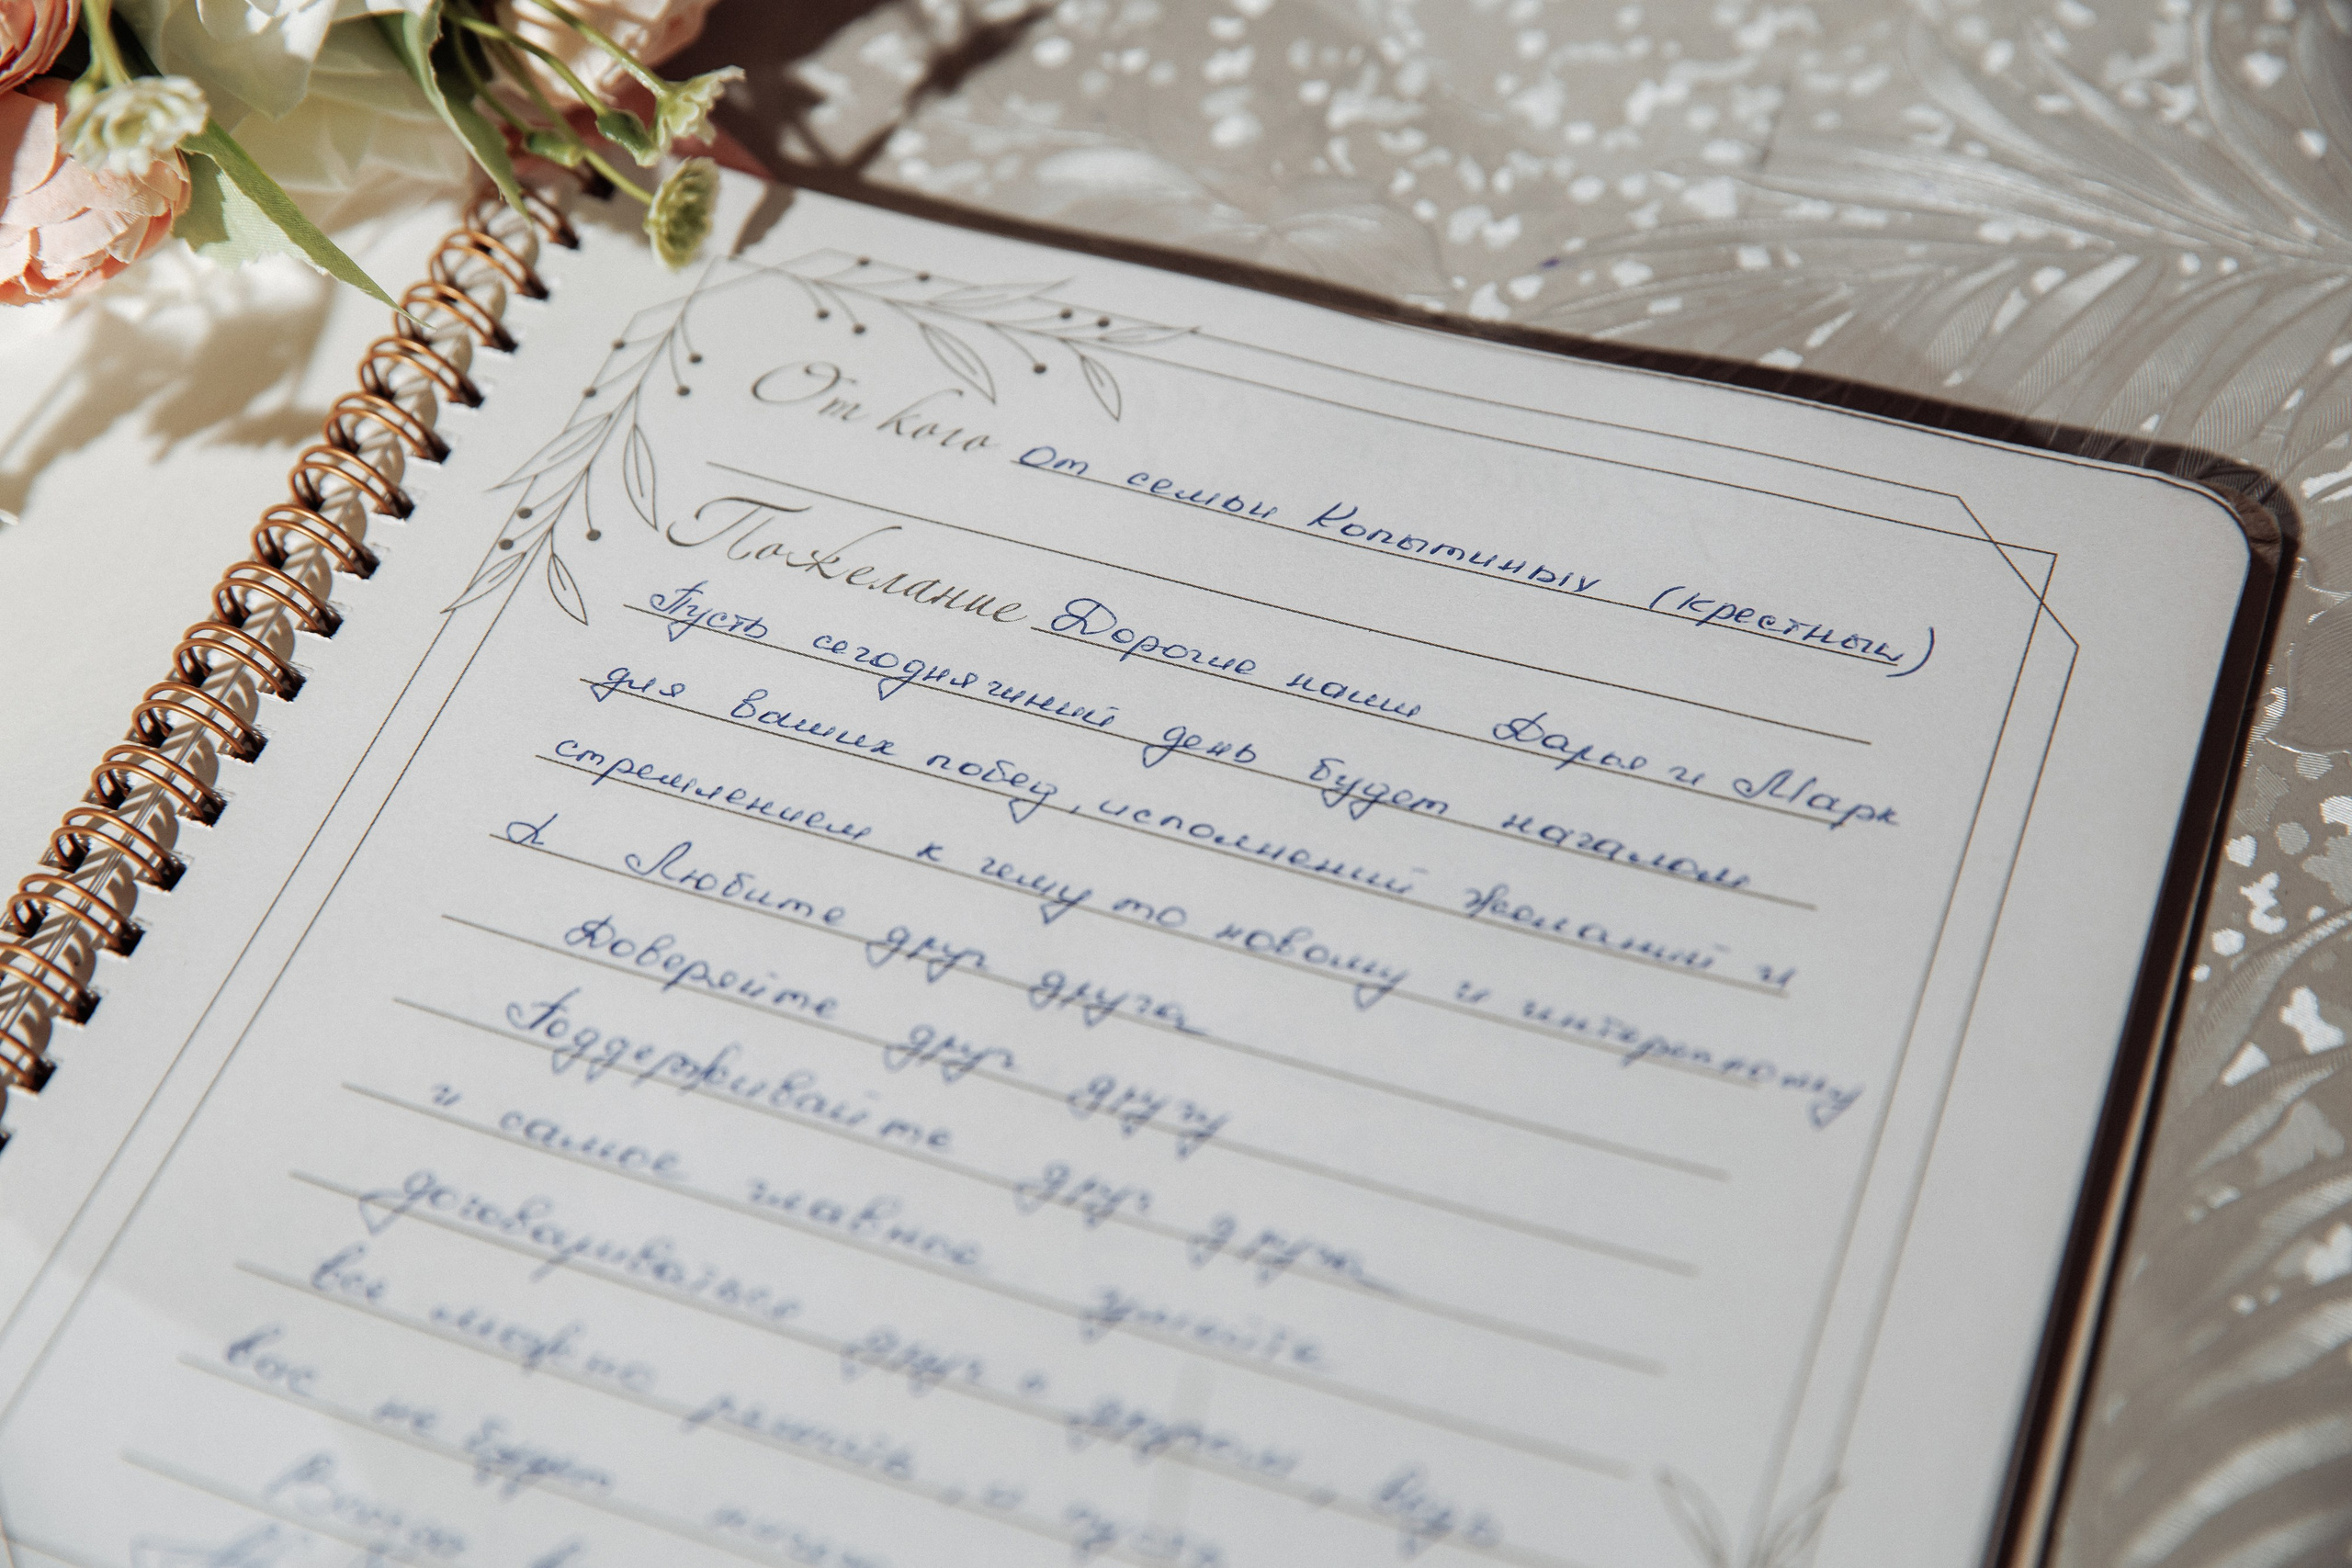 От кого от семьи Копытиных (крестные)
Пожелание Дорогие наши Дарья и Марк
Пусть сегодняшний день будет началом
для ваших побед, исполнений желаний и
стремлением к чему то новому и интересному
Д Любите друг друга
Доверяйте друг другу
Поддерживайте друг друга
и самое главное умейте
договариваться друг с другом, ведь
все можно решить, и пусть
вас не будет